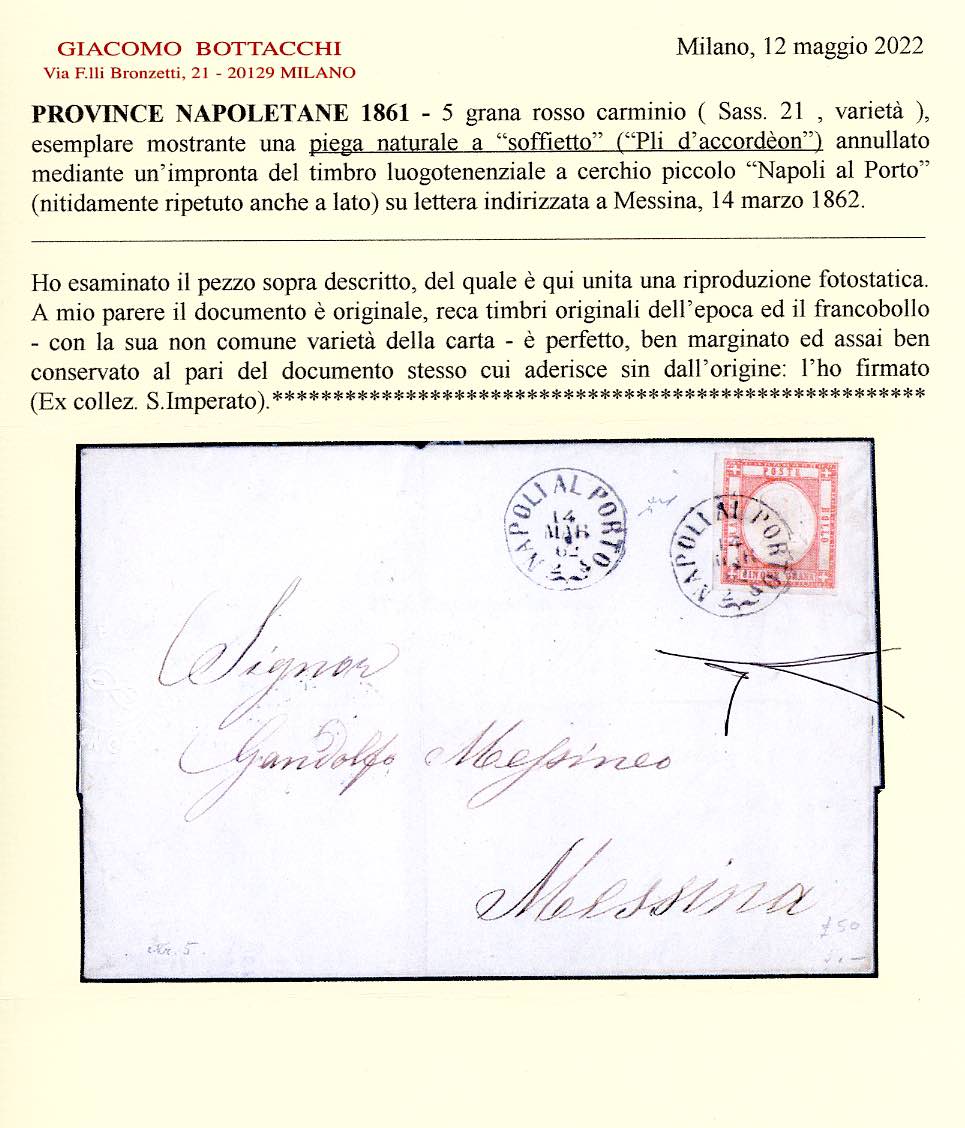 GIACOMO BOTTACCHI
Via F.lli Bronzetti, 21 - 20129 MILANO
Milano, 12 maggio 2022
PROVINCE NAPOLETANE 1861 - 5 grana rosso carminio ( Sass. 21 , varietà ),
esemplare mostrante una piega naturale a “soffietto” (“Pli d’accordèon”) annullato
mediante un’impronta del timbro luogotenenziale a cerchio piccolo “Napoli al Porto”
(nitidamente ripetuto anche a lato) su lettera indirizzata a Messina, 14 marzo 1862.
Ho esaminato il pezzo sopra descritto, del quale è qui unita una riproduzione fotostatica.
A mio parere il documento è originale, reca timbri originali dell’epoca ed il francobollo
- con la sua non comune varietà della carta - è perfetto, ben marginato ed assai ben
conservato al pari del documento stesso cui aderisce sin dall’origine: l’ho firmato
(Ex collez. S.Imperato).******************************************************
NAPOLI AL PORTO
14
MAR
62
POSTE
BOLLO
GRANA
NAPOLI AL PORTO
14
MAR
Signor
Gandolfo Messineo
Messina